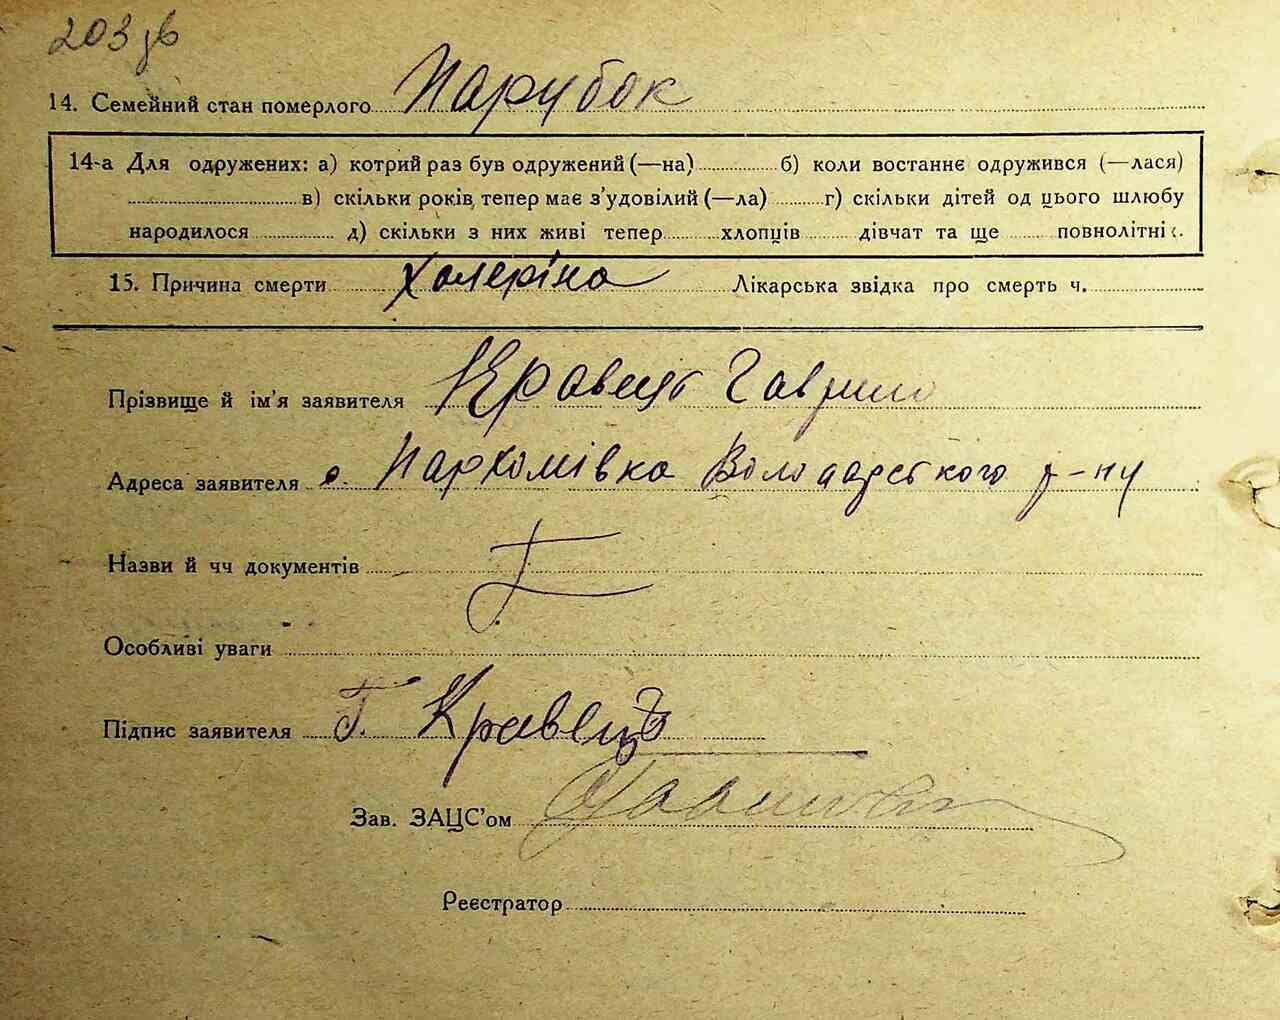 203 зв
14. Семейний стан померлого Парубок
14-а Для одружених: а) котрий раз був одружений (—на) б) коли востаннє одружився (—лася)
в) скільки років тепер має з'удовілий (—ла) г) скільки дітей од цього шлюбу
народилося д) скільки з них живі тепер хлопців дівчат та ще повнолітніх.
15. Причина смерти Холеріна Лікарська звідка про смерть ч.
Прізвище й ім'я заявителя Кравець Гаврило
Адреса заявителя с. Пархомівка Володарського р-ну
Назви й чч документів
Особливі уваги
Підпис заявителя Г. Кравець
Зав. ЗАЦС'ом
Реєстратор